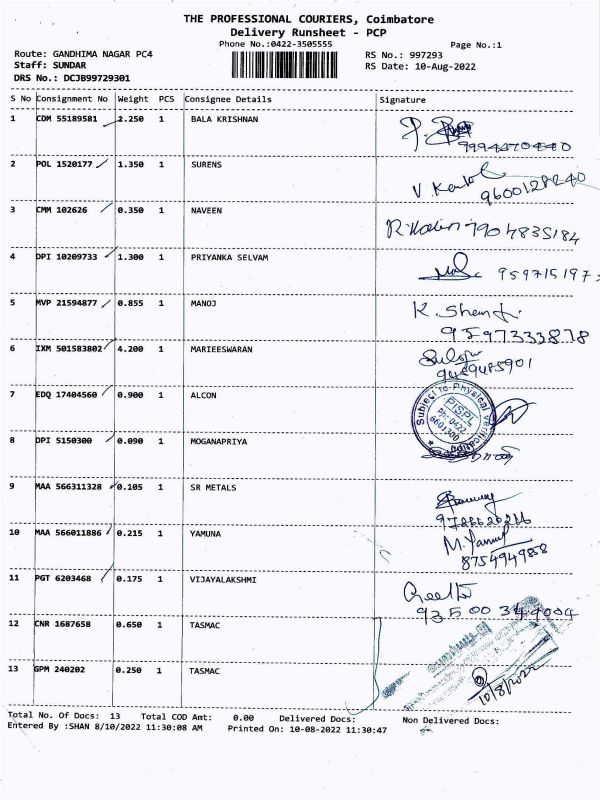 THE PROFESSIONAL COURIERS, Coimbatore
Delivery Runsheet - PCP
Phone No.:0422-3505555
Page No.:1
Route: GANDHIMA NAGAR PC4
RS No.: 997293
Staff: SUNDAR
RS Date: 10-Aug-2022
DRS No.: DCJB99729301
S No Consignment No Weight PCS Consignee Details Signature
1 CDM 55189581 2.250 1 BALA KRISHNAN
2 POL 1520177 1.350 1 SURENS
9600128240
3 CMM 102626 0.350 1 NAVEEN
7904835184
4 DPI 10209733 1.300 1 PRIYANKA SELVAM
959715197
5 MVP 21594877 0.855 1 MANOJ
9597333878
6 IXM 501583802 4.200 1 MARIEESWARAN
7 EDQ 17404560 0.900 1 ALCON
Subject to Physical verification
PISPL
PH: 0422
6601300
8 DPI 5150300 0.090 1 MOGANAPRIYA
9 MAA 566311328 0.105 1 SR METALS
10 MAA 566011886 0.215 1 YAMUNA
8754949858
11 PGT 6203468 0.175 1 VIJAYALAKSHMI
12 CNR 1687658 0.650 1 TASMAC
13 GPM 240202 0.250 1 TASMAC
10/8/2022
Total No. Of Docs: 13 Total COD Amt: 0.00 Delivered Docs: Non Delivered Docs:
Entered By :SHAN 8/10/2022 11:30:08 AM Printed On: 10-08-2022 11:30:47